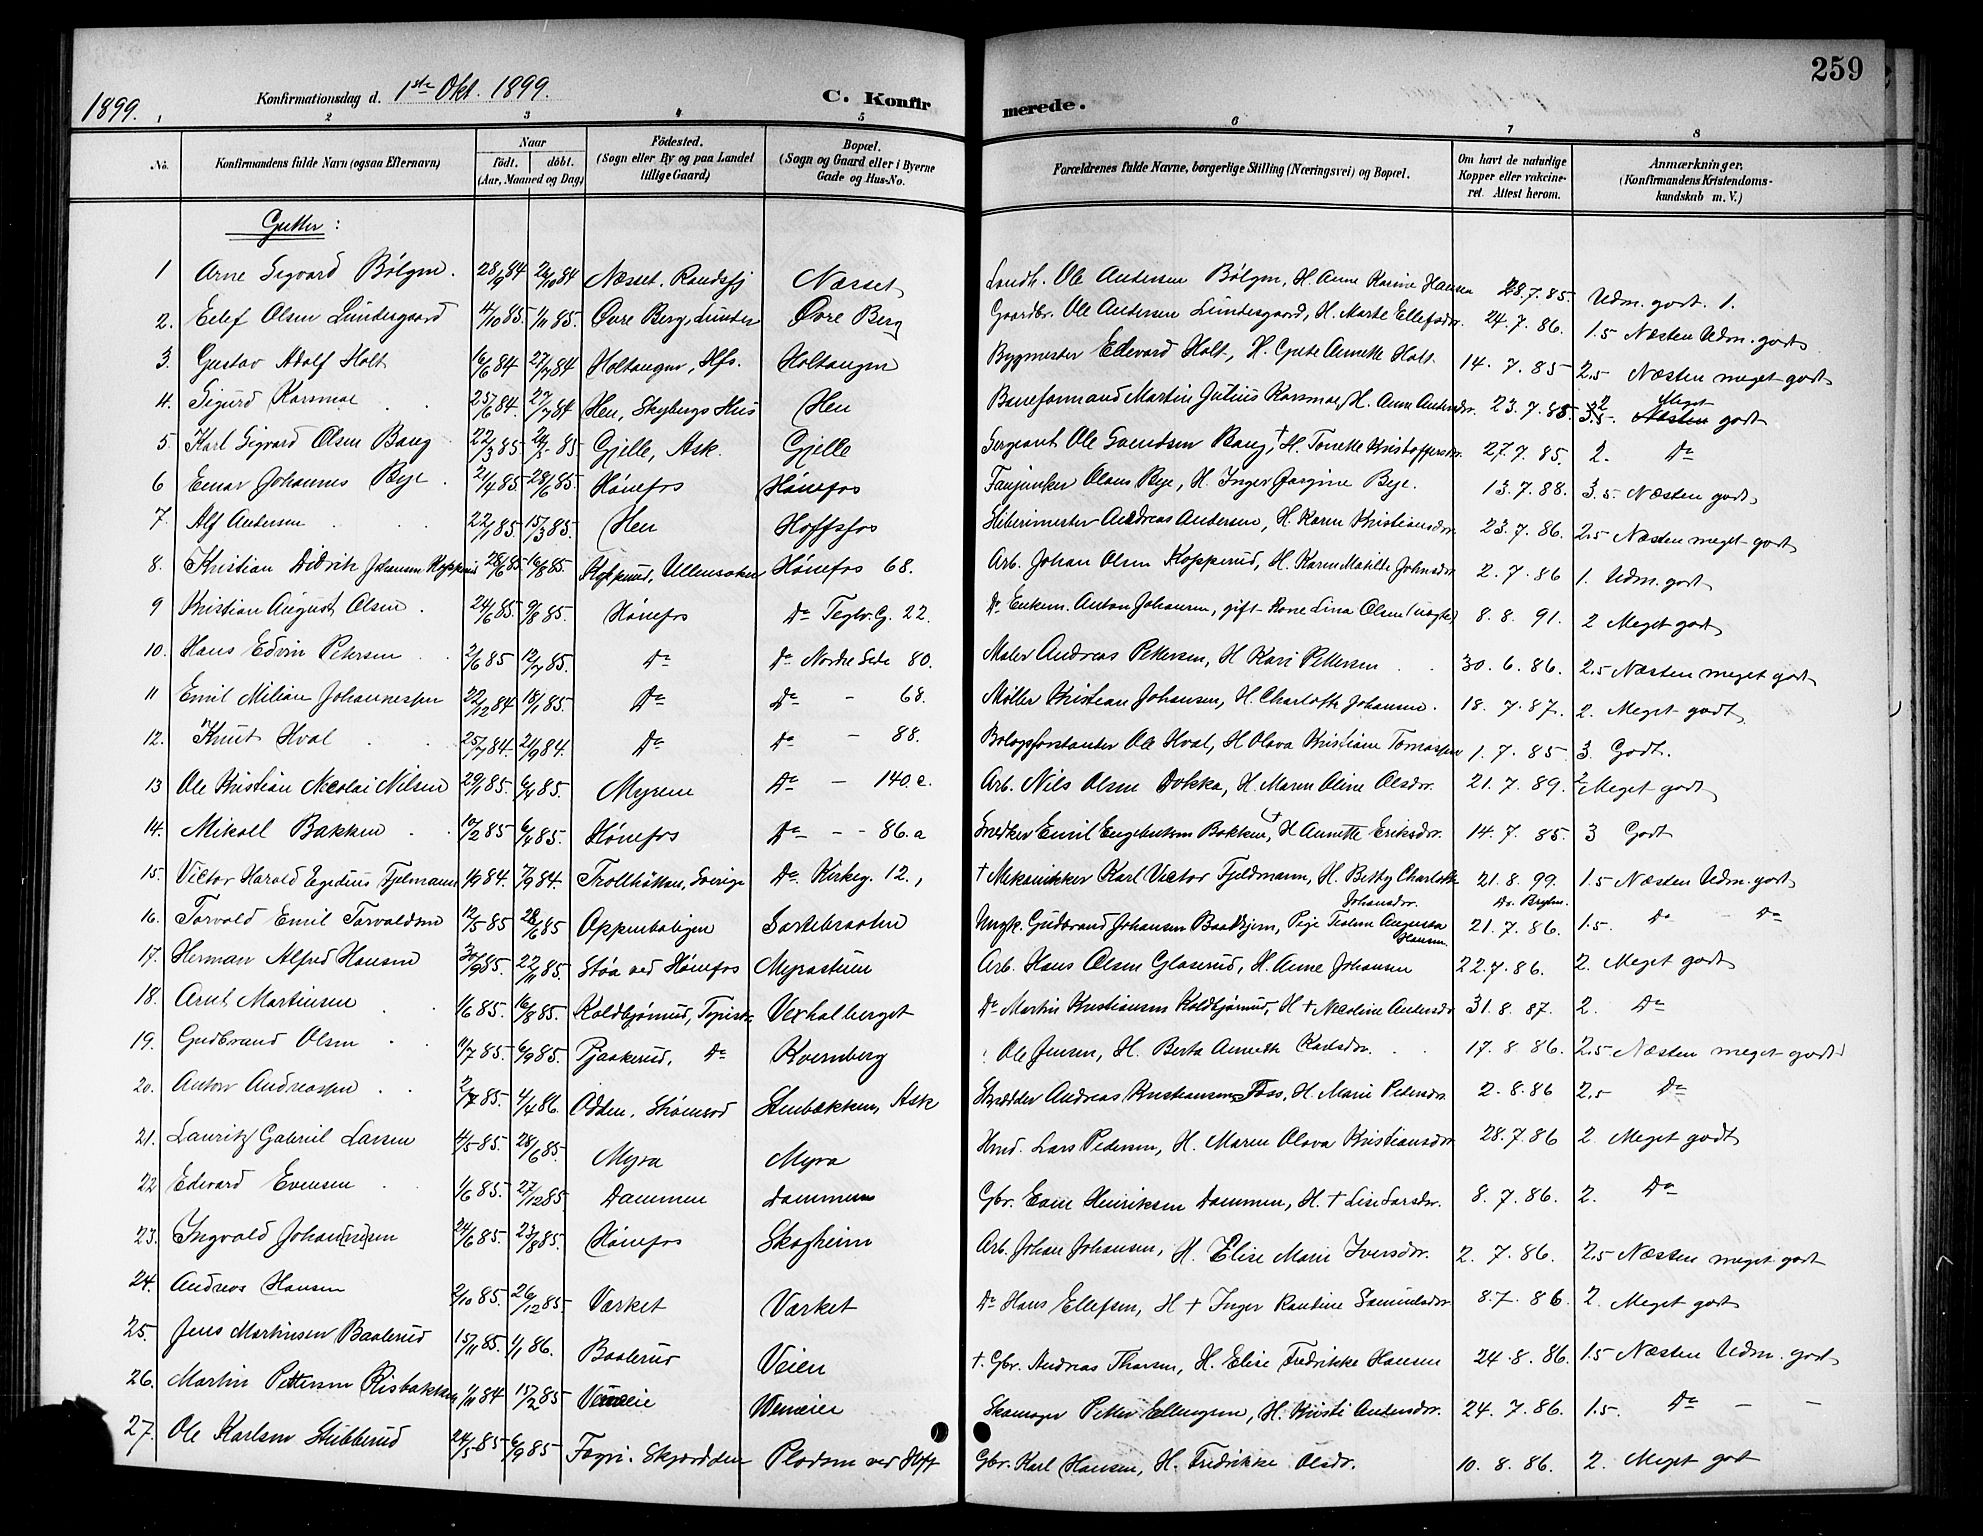 259
1899.
Konfirmationsdag d. 1ste Okt. 1899.
C. Konfirmerede.
1 2 3 4 5 6 7 8
No.
Konfirmandens fulde Navn (ogsaa Efternavn)
Naar
født. døbt.
(Aar, Maaned og Dag)
Fødested.
(Sogn eller By og paa Landet
tillige Gaard)
Bopæl.
(Sogn og Gaard eller i Byerne
Gade og Hus-No.
Forældrenes fulde Navne, borgerlige Stilling (Næringsvei) og Bopæl.
Om havt de naturlige
Kopper eller vakcine-
ret. Attest herom.
Anmærkninger.
(Konfirmandens Kristendoms-
kundskab m. V.)
Gutter:
1 Arne Sigvard Bølgen. 28/9 84 26/10 84 Næsset, Randsfj Næsset Landh. Ole Andersen Bølgen, H. Anne Karine Hansen 28.7.85. Udm. godt. 1.
2. Ellef Olsen Lundesgaard 4/10 85. 1/11 85. Øvre Berg, Lunder Øvre Berg Gaardbr. Ole Andersen Lundesgaard, H. Marte Ellefsdr. 24.7.86. 1.5 Næsten Udm. godt
3. Gustav Adolf Holt 16/6 84 27/7 84 Holtangen, Hfs. Holtangen Bygmester Edevard Holt, H. Grete Annette Holt. 14.7.85 2.5 Næsten meget godt
4. Sigurd Korsmoe 25/6 84. 27/7 84 Hen, Skybergs Hus Hen Baneformand Martin Julius Korsmoe, H. Anne Andersdr. 23.7.85 2 Meget godt
5. Karl Sigvard Olsen Bang 22/3 85. 24/5 85 Gjelle, Ask. Gjelle Sergeant Ole Svendsen Bang, † H. Tonette Kristoffersdr. 27.7.85. 2. Do
6 Einar Johannes Bye 21/4 85. 28/6 85. Hønefos Hønefos Fanjunker Olaus Bye, H. Inger Jørgine Bye. 13.7.88. 3.5. Næsten godt
7. Alf Andersen 22/1 85. 15/3 85. Hen Hoffsfos Sliberimester Andreas Andersen, H. Karen Kristiansdr. 23.7.86. 2.5 Næsten meget godt
8. Kristian Didrik Johansen Kopperud 28/6 85 16/8 85. Ullensaker Hønefos 68. Arb. Johan Olsen Kopperud, H. Karen Matilde Johnsdr. 2.7.86 1. Udm. godt
9 Kristian August Olsen 24/6 85. 9/8 85. Hønefos Do Teglv.G. 22. Do Enkem. Anton Johansen, gift Kone Lina Olsen (uægte) 8.8.91. 2 Meget godt
10. Hans Edvin Petersen 2/6 85 12/7 85. Do Do Nordre Side 80. Maler Andreas Pettersen, H Kari Pettersen 30.6.86. 2.5 Næsten meget godt
11 Emil Milian Johannessen 22/12 84 18/1 85. Do Do - 68. Møller Kristian Johansen, H. Charlotte Johansen. 18.7.87. 2. Meget godt
12. Knut Hval 25/7 84. 21/9 84. Do Do - 88. Bologsforstander Ole Hval, H Olava Kristiane Tomassen 1.7.85 3 Godt.
13 Ole Kristian Nicolai Nilsen 29/1 85. 6/4 85. Myrene Do - 140 c. Arb. Nils Olsen Dokka, H. Maren Oline Olsdr. 21.7.89. 2 Meget godt
14. Mikall Bakken 10/2 85 6/4 85. Hønefos Do - - 86.a Snedker Emil Engebretsen Bakken, † H Annette Eriksdr. 14.7.85. 3 Godt
15. Victor Harald Egidius Fjelmann 1/9 84. 7/9 84. Trollhättan, Sverige Do Kirkeg. 12., † Mekanikker Karl Victor Fjeldmann, H. Betty Charlotte Johansdr. 21.8.99. 1.5 Næsten Udm. godt
16. Torvald Emil Torvaldsen 12/5 85 28/6 85 Oppenboligen Sættebraaten Ungk. Gudbrand Johansen, Pige Teoline Augusta Hansen 21.7.86. 1.5. Do - Do
17. Herman Alfred Hansen 30/9 85. 22/11 85. Støa ved Hønefos Myrastuen Arb. Hans Olsen Glaserud, H. Anne Johansen 22.7.86. 2. Meget godt
18. Arnt Martinsen 1/6 85. 16/8 85. Koldbjørnrud, Vexhalberget Do Martin Kristiansen Koldbjørnrud, H † Nicoline Andersdr 31.8.87. 2. Do
19. Gudbrand Olsen 11/7 85. 6/9 85. Pjaakerud, Do Kvernberg Ole Jensen, H. Berta Annette Karlsdr. 17.8.86. 2.5 Næsten meget godt
20. Anton Andreassen 2/7 85. 4/4 86. Odden, Stenbækken, Ask Skrædder Andreas Kristiansen Foss, H. Marie Pedersdr. 2.8.86 2.5 Do
21. Lauritz Gabriel Larsen 4/5 85. 28/6 85. Myra Myra Hmd. Lars Pedersen, H. Maren Olava Kristiansdr 28.7.86 2. Meget godt
22 Edevard Evensen 1/6 85. 27/12 85. Dammen Dammen Gbr. Even Henriksen Dammen, H. † Lise Larsdr. 8.7.86. 2. Do
23. Ingvald Johan[ne]sen 24/6 85. 23/8 85. Hønefos Skogheim Arb. Johan Johansen, H. Elise Marie Iversdr. 2.7.86. 2.5 Næsten meget godt
24. Andreas Hansen 2/10 85. 26/12 85. Værket Værket Do Hans Ellefsen, H † Inger Karoline Samuelsdr 8.7.86. 2. Meget godt
25. Jens Martinsen Baalerud 15/11 85. 1/1 86. Baalerud Veien † Gbr. Andreas Thorsen, H. Elise Fredrikke Hansen 24.8.86. 1.5 Næsten Udm. godt
26. Martin Pettersen Risbakken 1/11 84 15/2 85 Vemeie Vemeier Skomager Petter Ellingsen, H. Kristi Andersdr. 24.7.86. 1.5. Do - -
27. Ole Karlsen Stubberud 24/5 85 6/9 85 Fægri. Skjørdden Pladsen ved Hoff Gbr. Karl Hansen, H. Fredrikke Olsdr. 10.8.86. 2. Meget godt